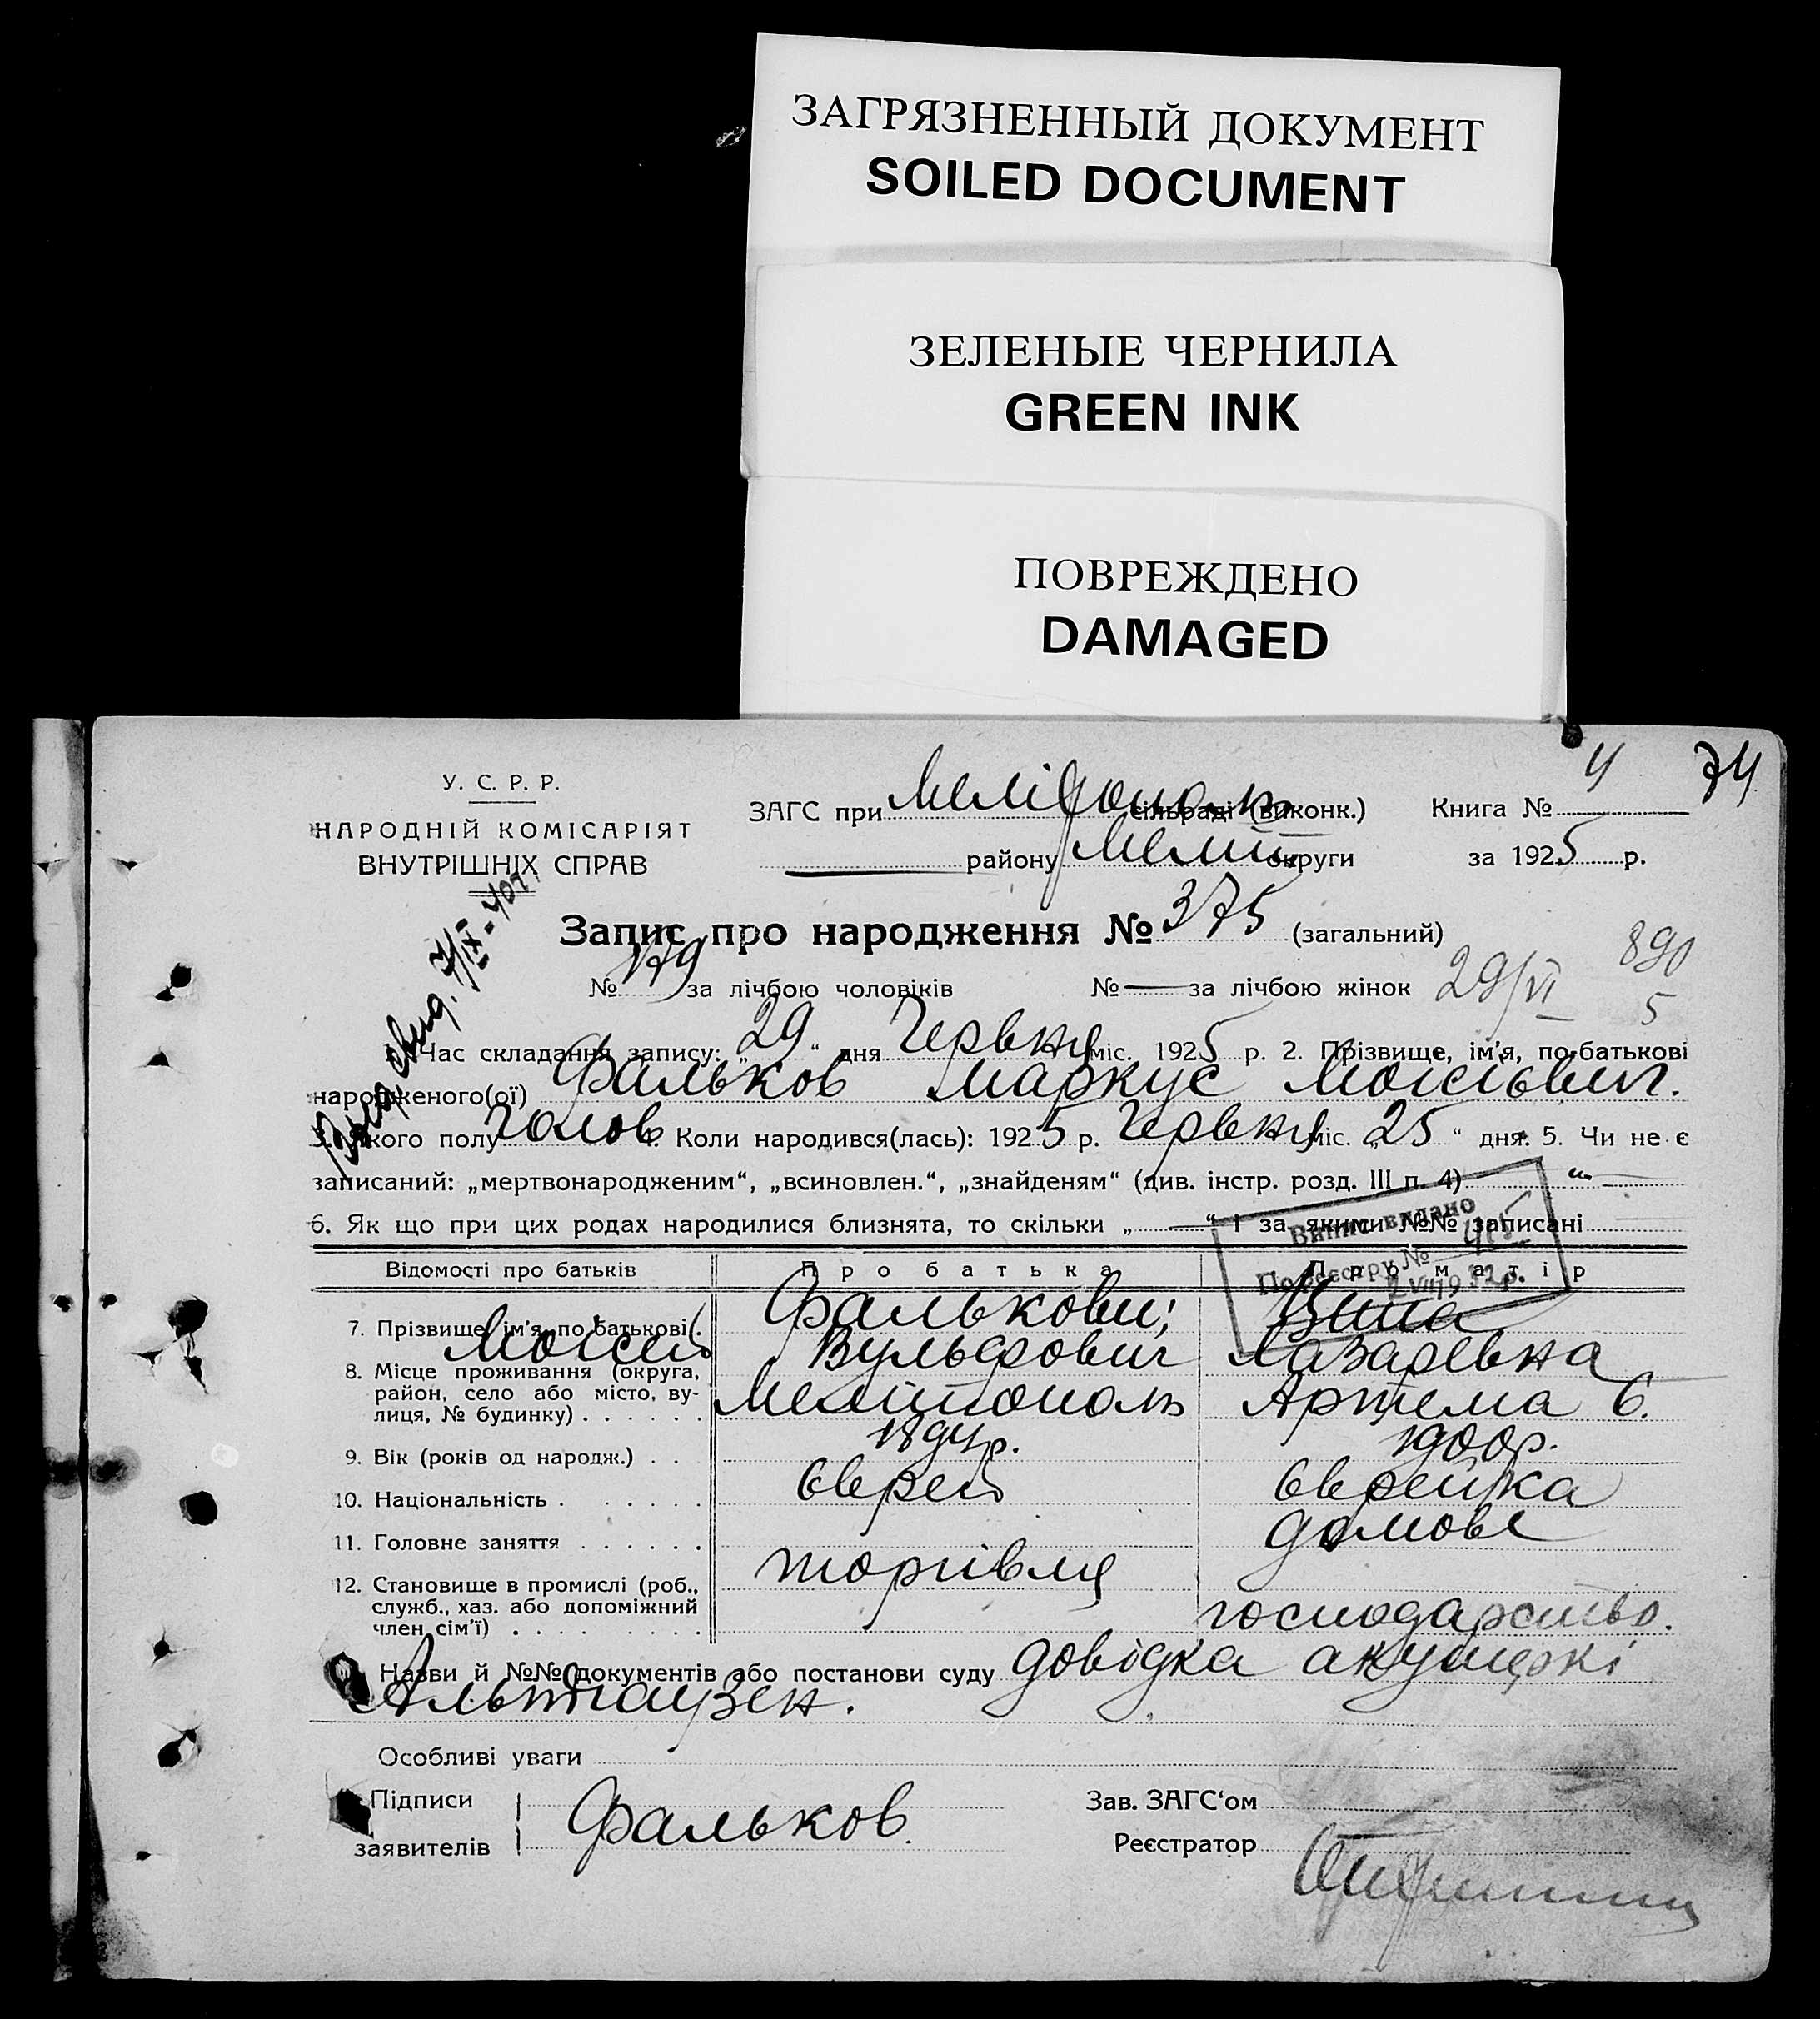 ЗАГРЯЗНЕННЫЙ ДОКУМЕНТ
SOILED DOCUMENT
ЗЕЛЕНЫЕ ЧЕРНИЛА
GREEN INK
ПОВРЕЖДЕНО
DAMAGED
74
У. С. Р. Р.
НАРОДНІЙ КОМІСАРІЯТ
ВНУТРІШНІХ СПРАВ
ЗАГС при Мелітополь сільраді (виконк.) Книга № 4
району Меліт округи за 1925 р.
Запис про народження № 375 (загальний)
890
5
№ 179 за лічбою чоловіків № — за лічбою жінок 29/VI
Час складання запису: „29“ дня Червня міс. 1925 р. 2. Прізвище, ім'я, по-батькові
народженого(ої) Фальков Маркус Мойсієвич.
3. Якого полу чолов 4. Коли народився(лась): 1925 р. Червня міс. „25“ дня. 5. Чи не є
записаний: „мертвонародженим“, „всиновлен.“, „знайденям“ (див. інстр. розд. III п. 4)
6. Як що при цих родах народилися близнята, то скільки „—“ і за якими №№ записані
Випис видано
По реєстру №
2 VIII 1932 р.
Відомості про батьків Про батька Про матір
7. Прізвище, ім'я, по батькові Мойсей Фалькови; Вульфович Циля Лазаревна
8. Місце проживання (округа, район, село або місто, вулиця, № будинку) Мелітополь Артема 6.
9. Вік (років од народж.) 1894р. 1900р.
10. Національність Єврей Єврейка
11. Головне заняття торгівля домове господарство.
12. Становище в промислі (роб., служб., хаз. або допоміжний член сім'ї)
Назви й №№ документів або постанови суду довідка акушеркі
Альтгаузен.
Особливі уваги
Підписи заявителів Фальков
Зав. ЗАГС'ом
Реєстратор